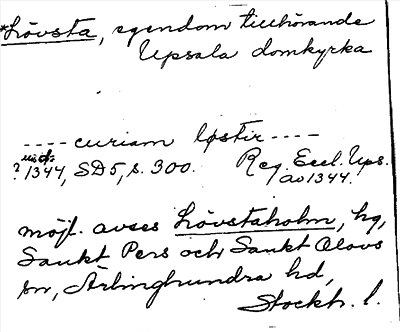 *Lövsta, egendom tillhörande
Upsala domkyrka
---- curiam løstir ----
? 1344, SD5, s. 300. Reg. Eccl. Ups.
av 1344.
möjl. avses Lövstaholm, hg,
Sankt Pers och Sankt Olovs
sn, Ärlinghundra hd,
Stockh. l.